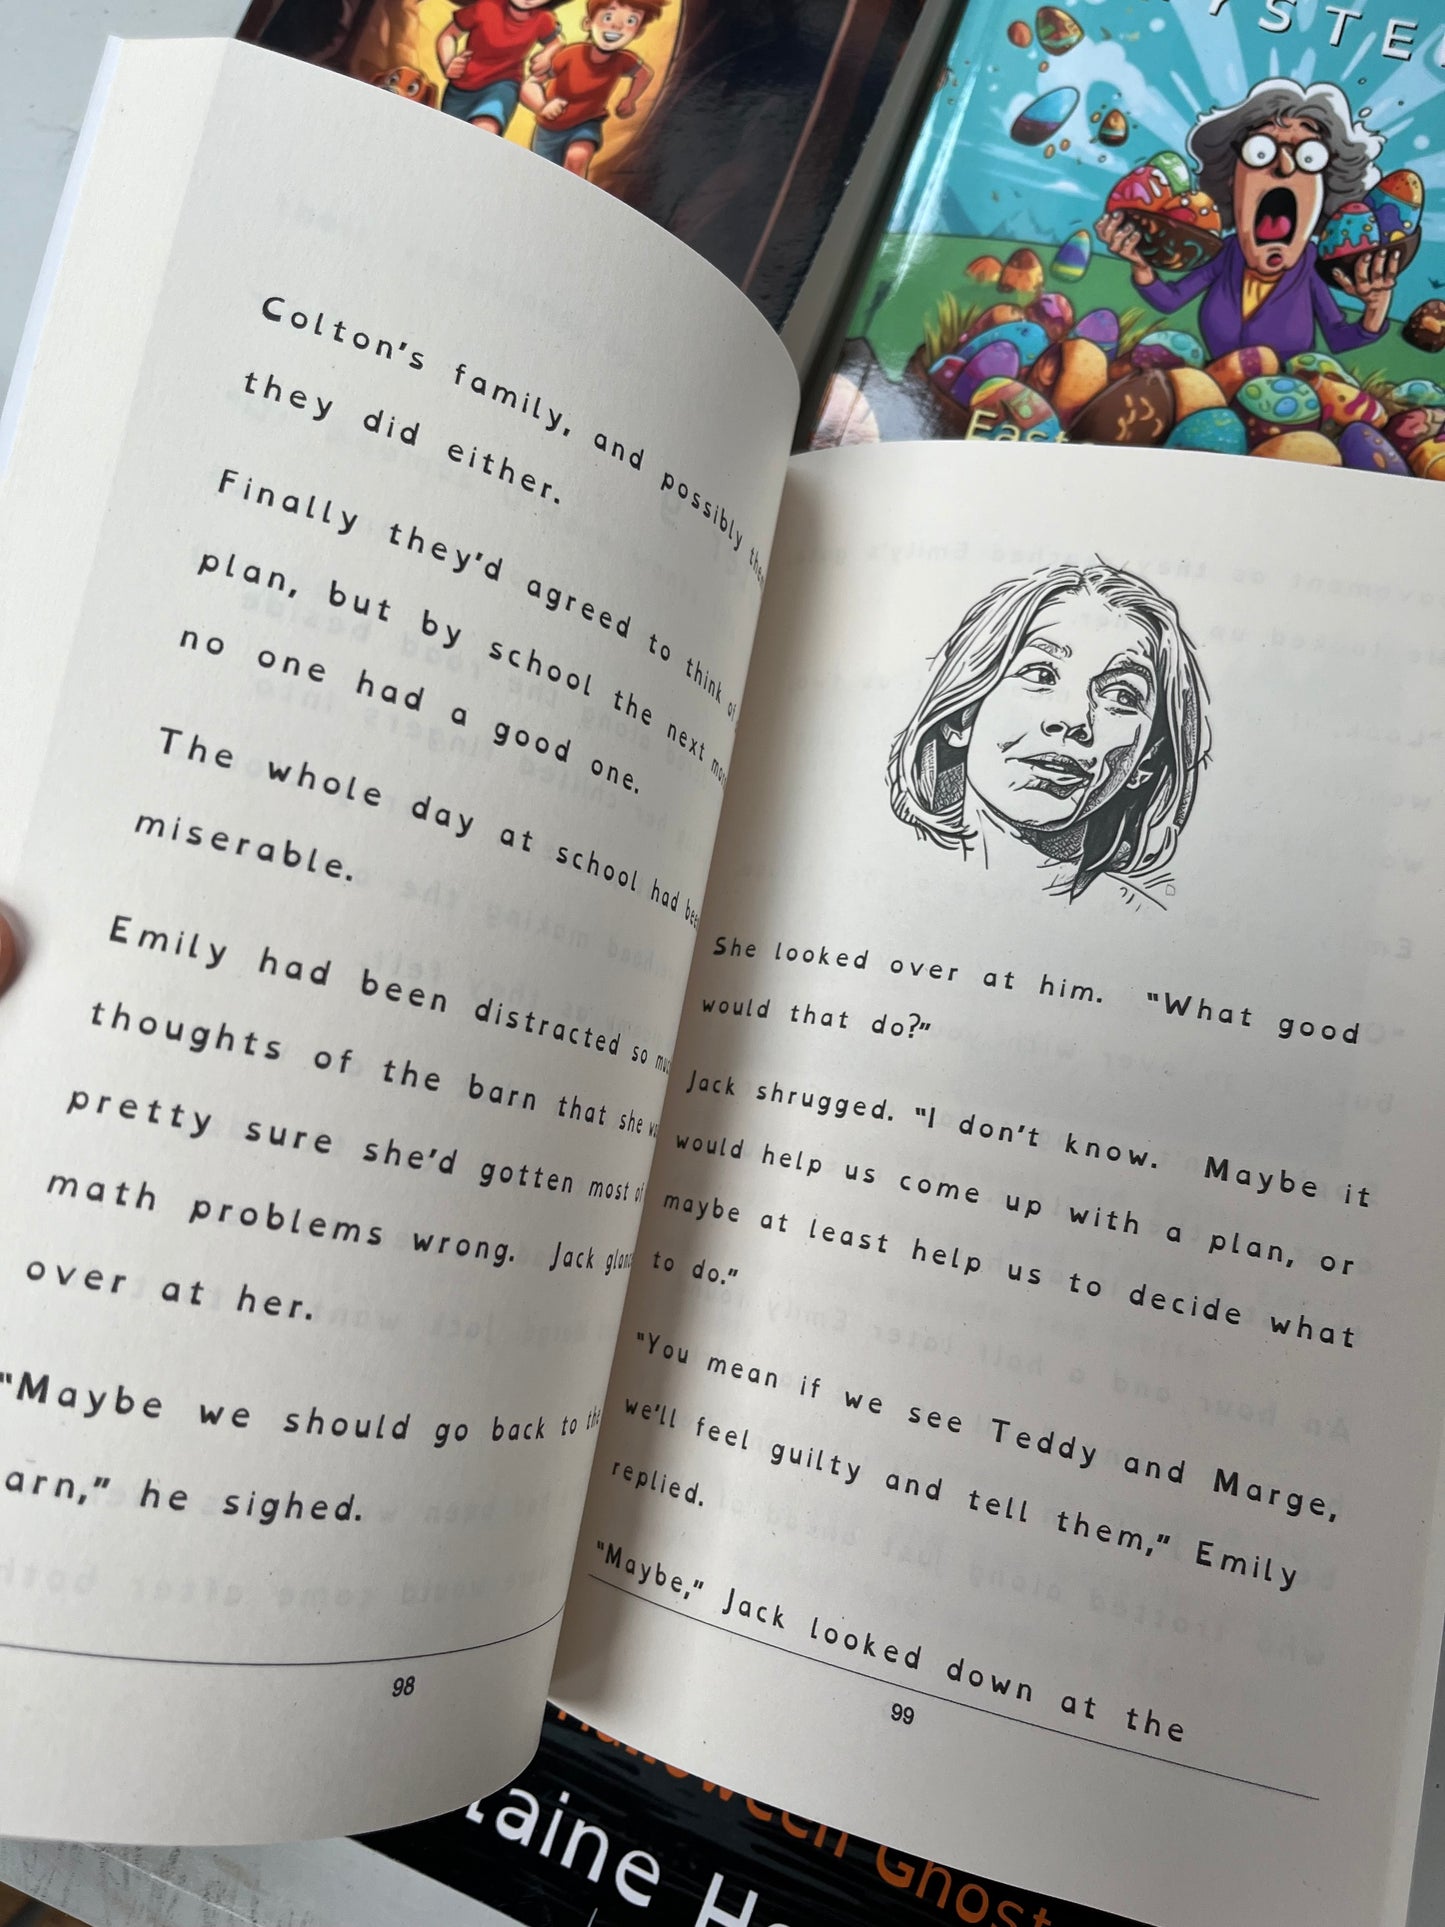 YSTE
East
Colton's family, and possibly
they did either.
Finally they'd agreed to think of
plan, but by school the next
no one had a good one.
The whole day at school had
miserable.
Emily had been distracted so
thoughts of the barn that she
pretty sure she'd gotten most of
math problems wrong. Jack
over at her.
"Maybe we should go back to the
arn," he sighed.
98
She looked over at him. "What good
would that do?"
Jack shrugged. "I don't know. Maybe it
would help us come up with a plan, or
maybe at least help us to decide what
to do."
"You mean if we see Teddy and Marge,
we'll feel guilty and tell them," Emily
replied.
"Maybe," Jack looked down at the
99
Halloween Ghost
laine H